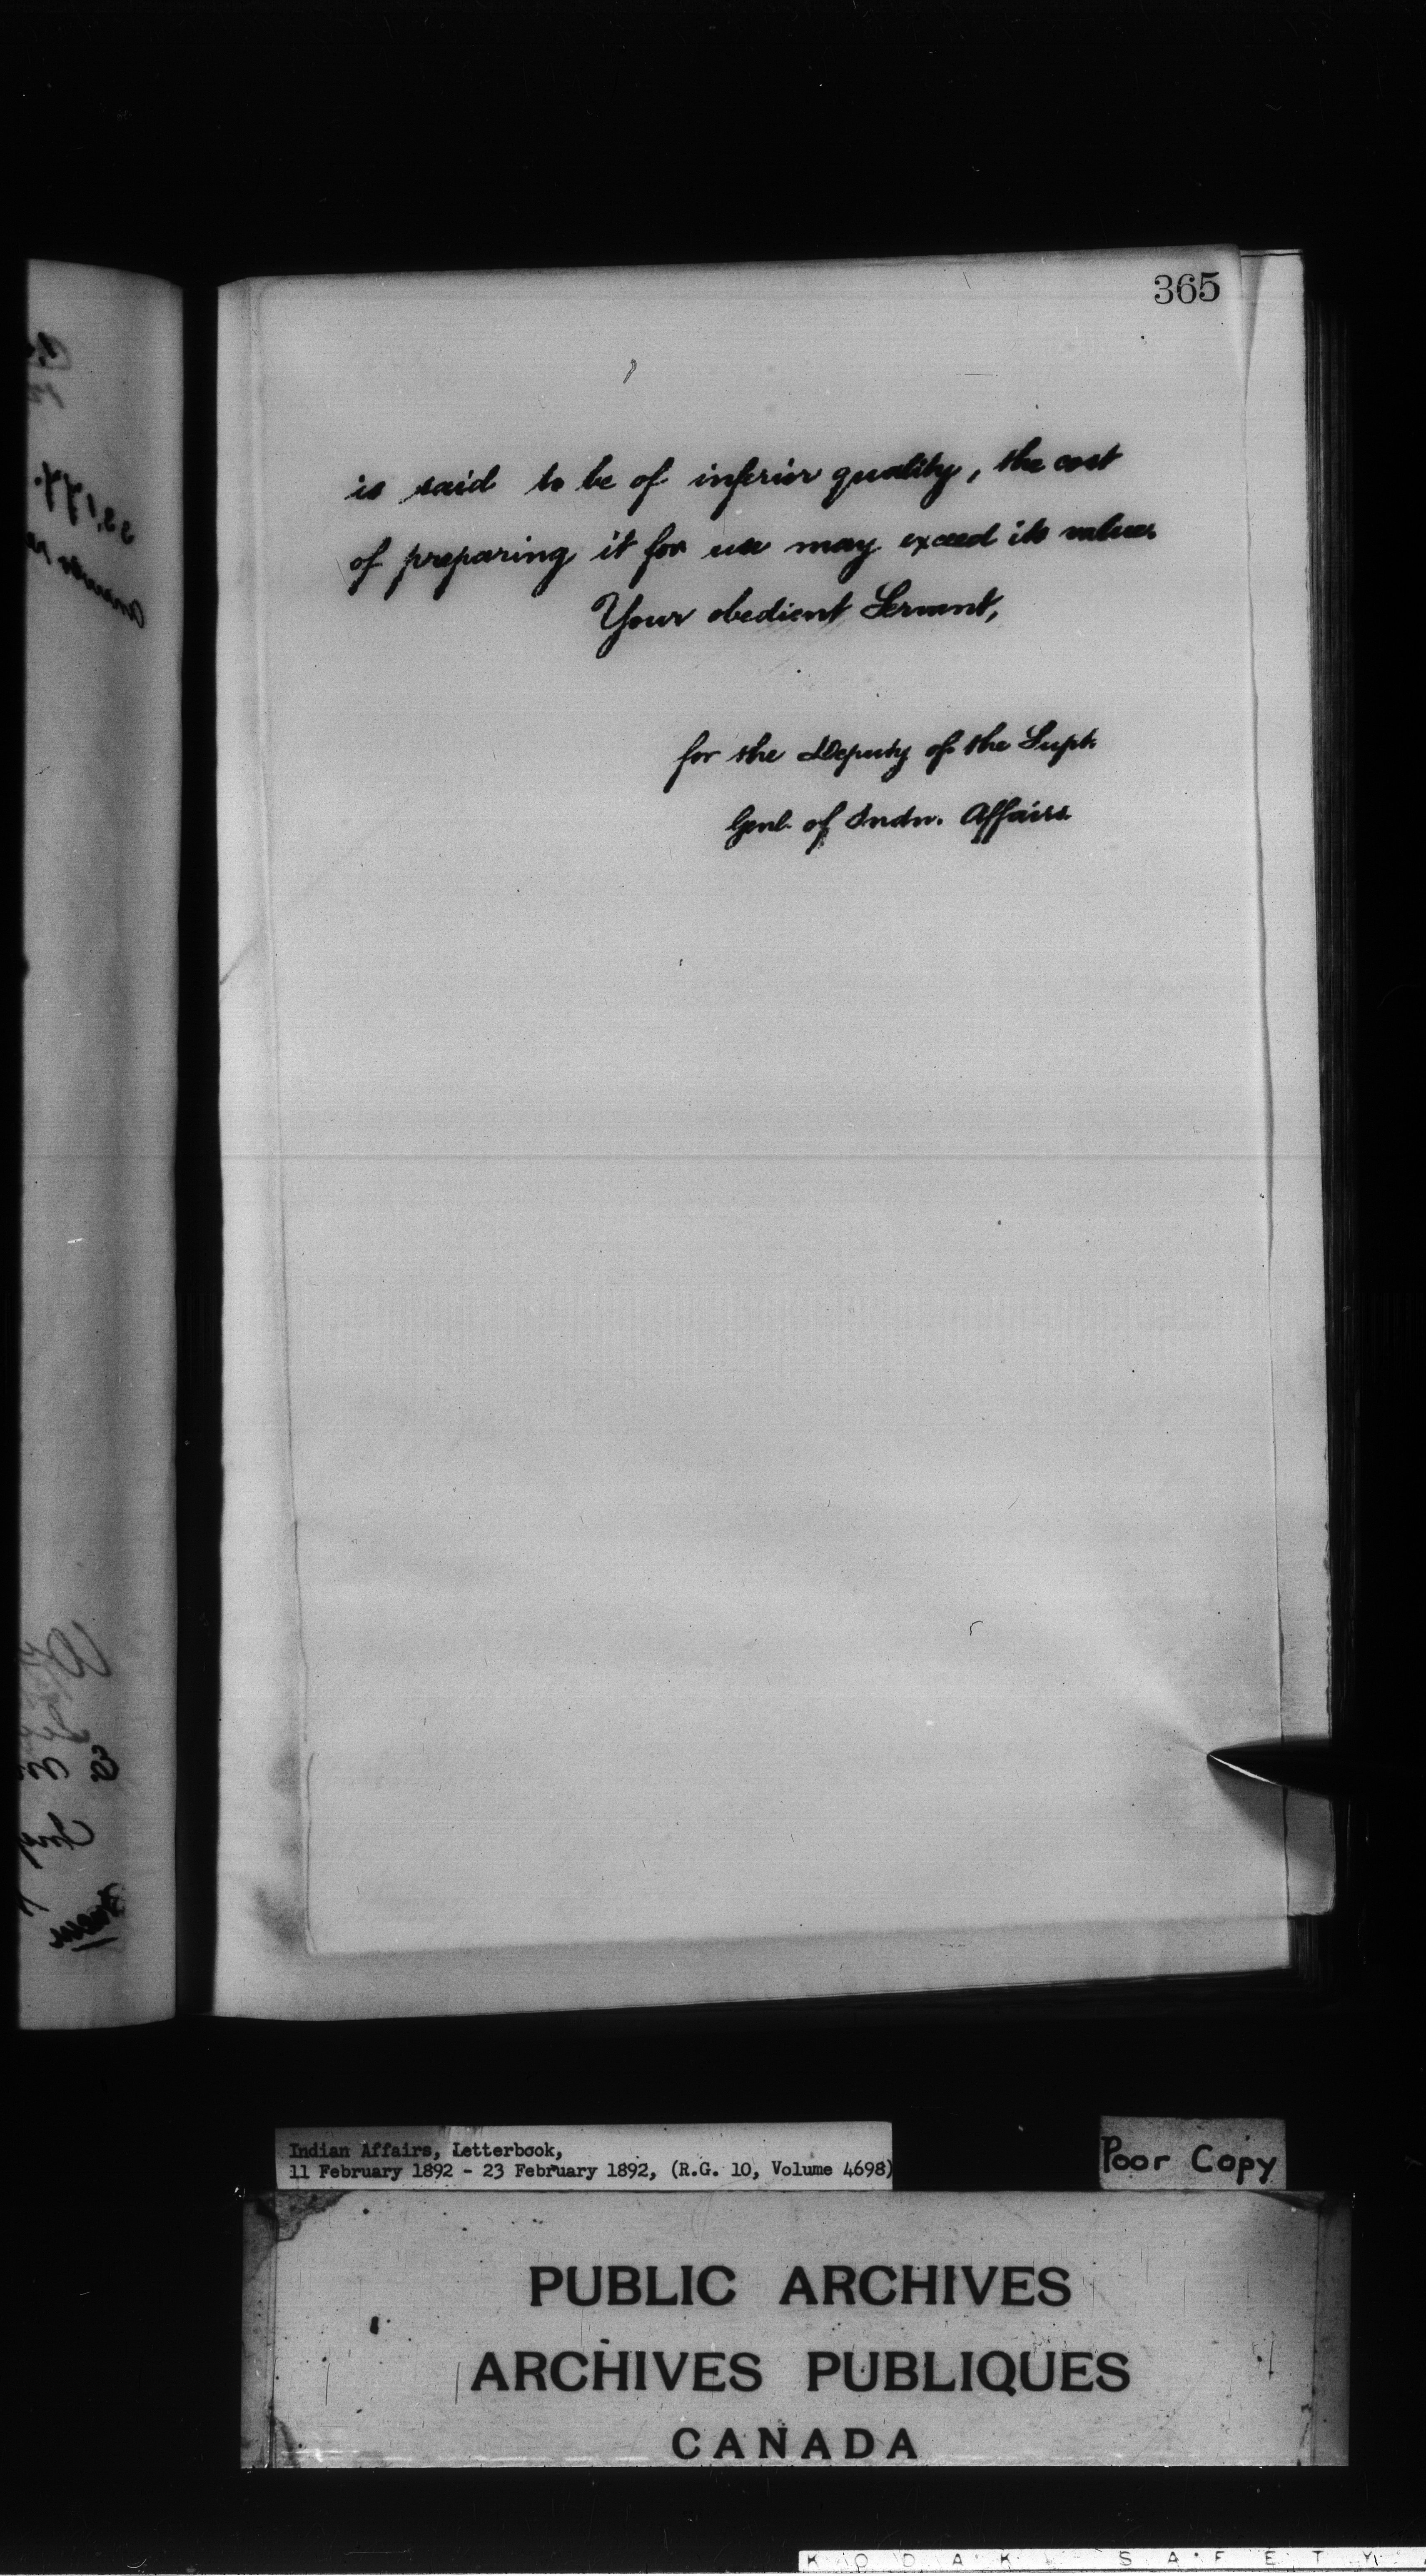 365
is said to be of inferior quality, the cost
of preparing it for use may exceed its value.
Your obedient Servant,
for the Deputy of the Supt.
Genl. of Indn. Affairs
Indian Affairs, Letterbook,
11 February 1892 - 23 February 1892, (R.G. 10, Volume 4698)
Poor Copy
PUBLIC ARCHIVES
ARCHIVES PUBLIQUES
CANADA
KODAK SAFETY